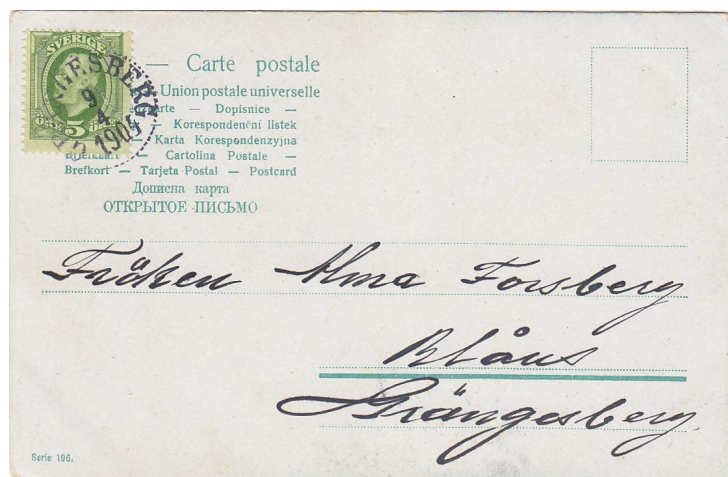 SVERIGE
5
GESBERG
9
4
1904
— Carte postale
Union postale universelle
— Dopisnice —
— Korespondenční listek
— Karta Korespondenzyjna
— Cartolina Postale —
Brefkort — Tarjeta Postal — Postcard
Дописна карта
ОТКРЫТОЕ ПИСЬМО
Fröken Alma Forsberg
Blåns
Grängesberg
Serie 196.